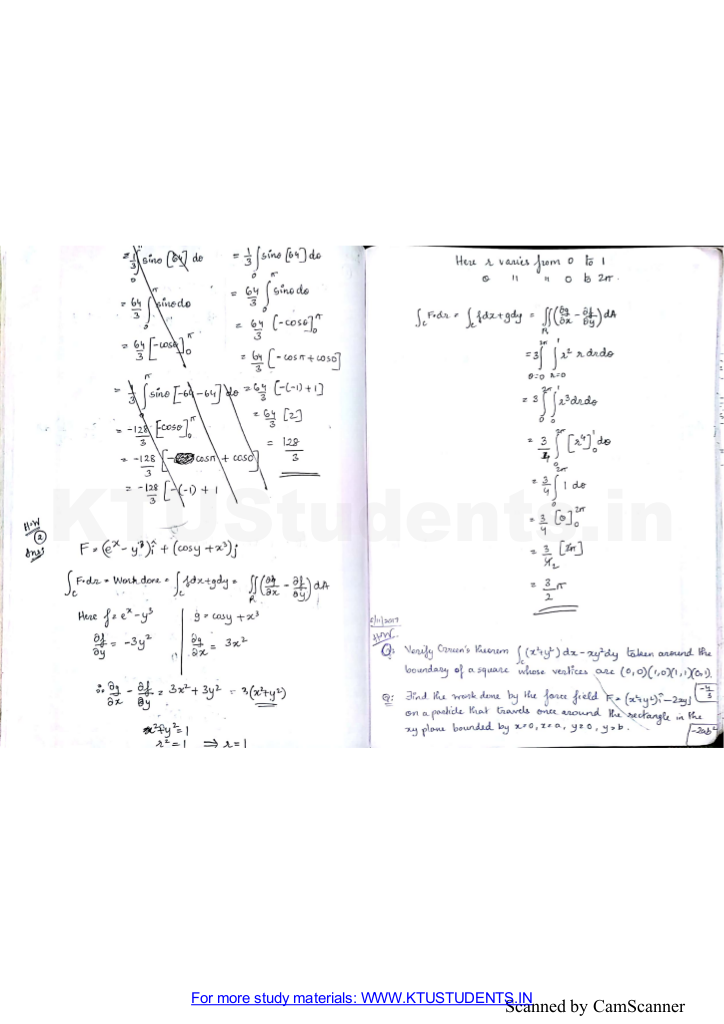 = 1/3 ∫₀^π sinθ [64] dθ
= 64/3 ∫₀^π sinθ dθ
= 64/3 [-cosθ]₀^π
= 1/3 ∫₀^π sinθ [-64-64] dθ
= -128/3 [-cosθ]₀^π
= -128/3 [- cosπ + cos0]
= -128/3 [-(-1) + 1
= 1/3 ∫₀^π sinθ [64] dθ
= 64/3 ∫₀^π sinθ dθ
= 64/3 [-cosθ]₀^π
= 64/3 [-cosπ + cos0]
= 64/3 [-(-1) + 1]
= 64/3 [2]
= 128/3
H.W
②
Ans:
F = (eˣ - y³)î + (cosy + x³)j
∫_c F·dr = Work done = ∫_c fdx + gdy = ∬_R (∂g/∂x - ∂f/∂y) dA
Here f = eˣ - y³
∂f/∂y = -3y²
g = cosy + x³
∂g/∂x = 3x²
∴ ∂g/∂x - ∂f/∂y = 3x² + 3y² = 3(x²+y²)
x²+y² = 1
r² = 1 ⇒ r = 1
Here r varies from 0 to 1
θ " " 0 to 2π.
∫_c F·dr = ∫_c fdx + gdy = ∬_R (∂g/∂x - ∂f/∂y) dA
= 3 ∫_{θ=0}^{2π} ∫_{r=0}^{1} r² r dr dθ
= 3 ∫₀^{2π} ∫₀^1 r³ dr dθ
= 3/4 ∫₀^{2π} [r⁴]₀^1 dθ
= 3/4 ∫₀^{2π} 1 dθ
= 3/4 [θ]₀^{2π}
= 3/4₂ [2π]
= 3/2 π
/11/2017
H.W
Q: Verify Green's theorem ∫_c (x²+y²) dx - xy²dy taken around the
boundary of a square whose vertices are (0,0)(1,0)(1,1)(0,1).
Q: Find the work done by the force field F = (x²+y²)î - 2xyj
on a particle that travels once around the rectangle in the
xy plane bounded by x=0, x=a, y=0, y=b.
-4/3
-2ab²
KTUStudents.in
For more study materials: WWW.KTUSTUDENTS.IN
Scanned by CamScanner